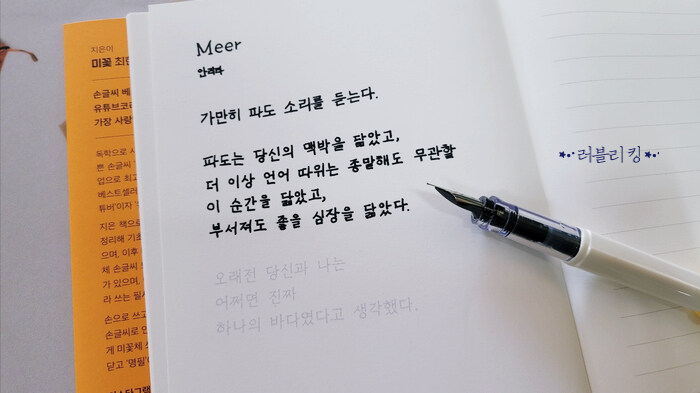 지은이
미꽃 최현
손글씨 베
유튜브코리
가장 사랑
Meer
안리타
가만히 파도 소리를 듣는다.
파도는 당신의 맥박을 닮았고,
더 이상 언어 따위는 종말해도 무관할
이 순간을 닮았고,
부서져도 좋을 심장을 닮았다.
오래전 당신과 나는
어쩌면 진짜
하나의 바다였다고 생각했다.
독학으로 시
튼 손글씨
업으로 최고
베스트셀러
튜버'이자 '
지은 책으로
정리해 기초
으며, 이후
체 손글씨
가 있으며,
라 쓰는 필사
손으로 쓰고
손글씨로 인
게 미꽃체 손
닫고 '명필'이
인스타그램
★•·러블리킹★•·